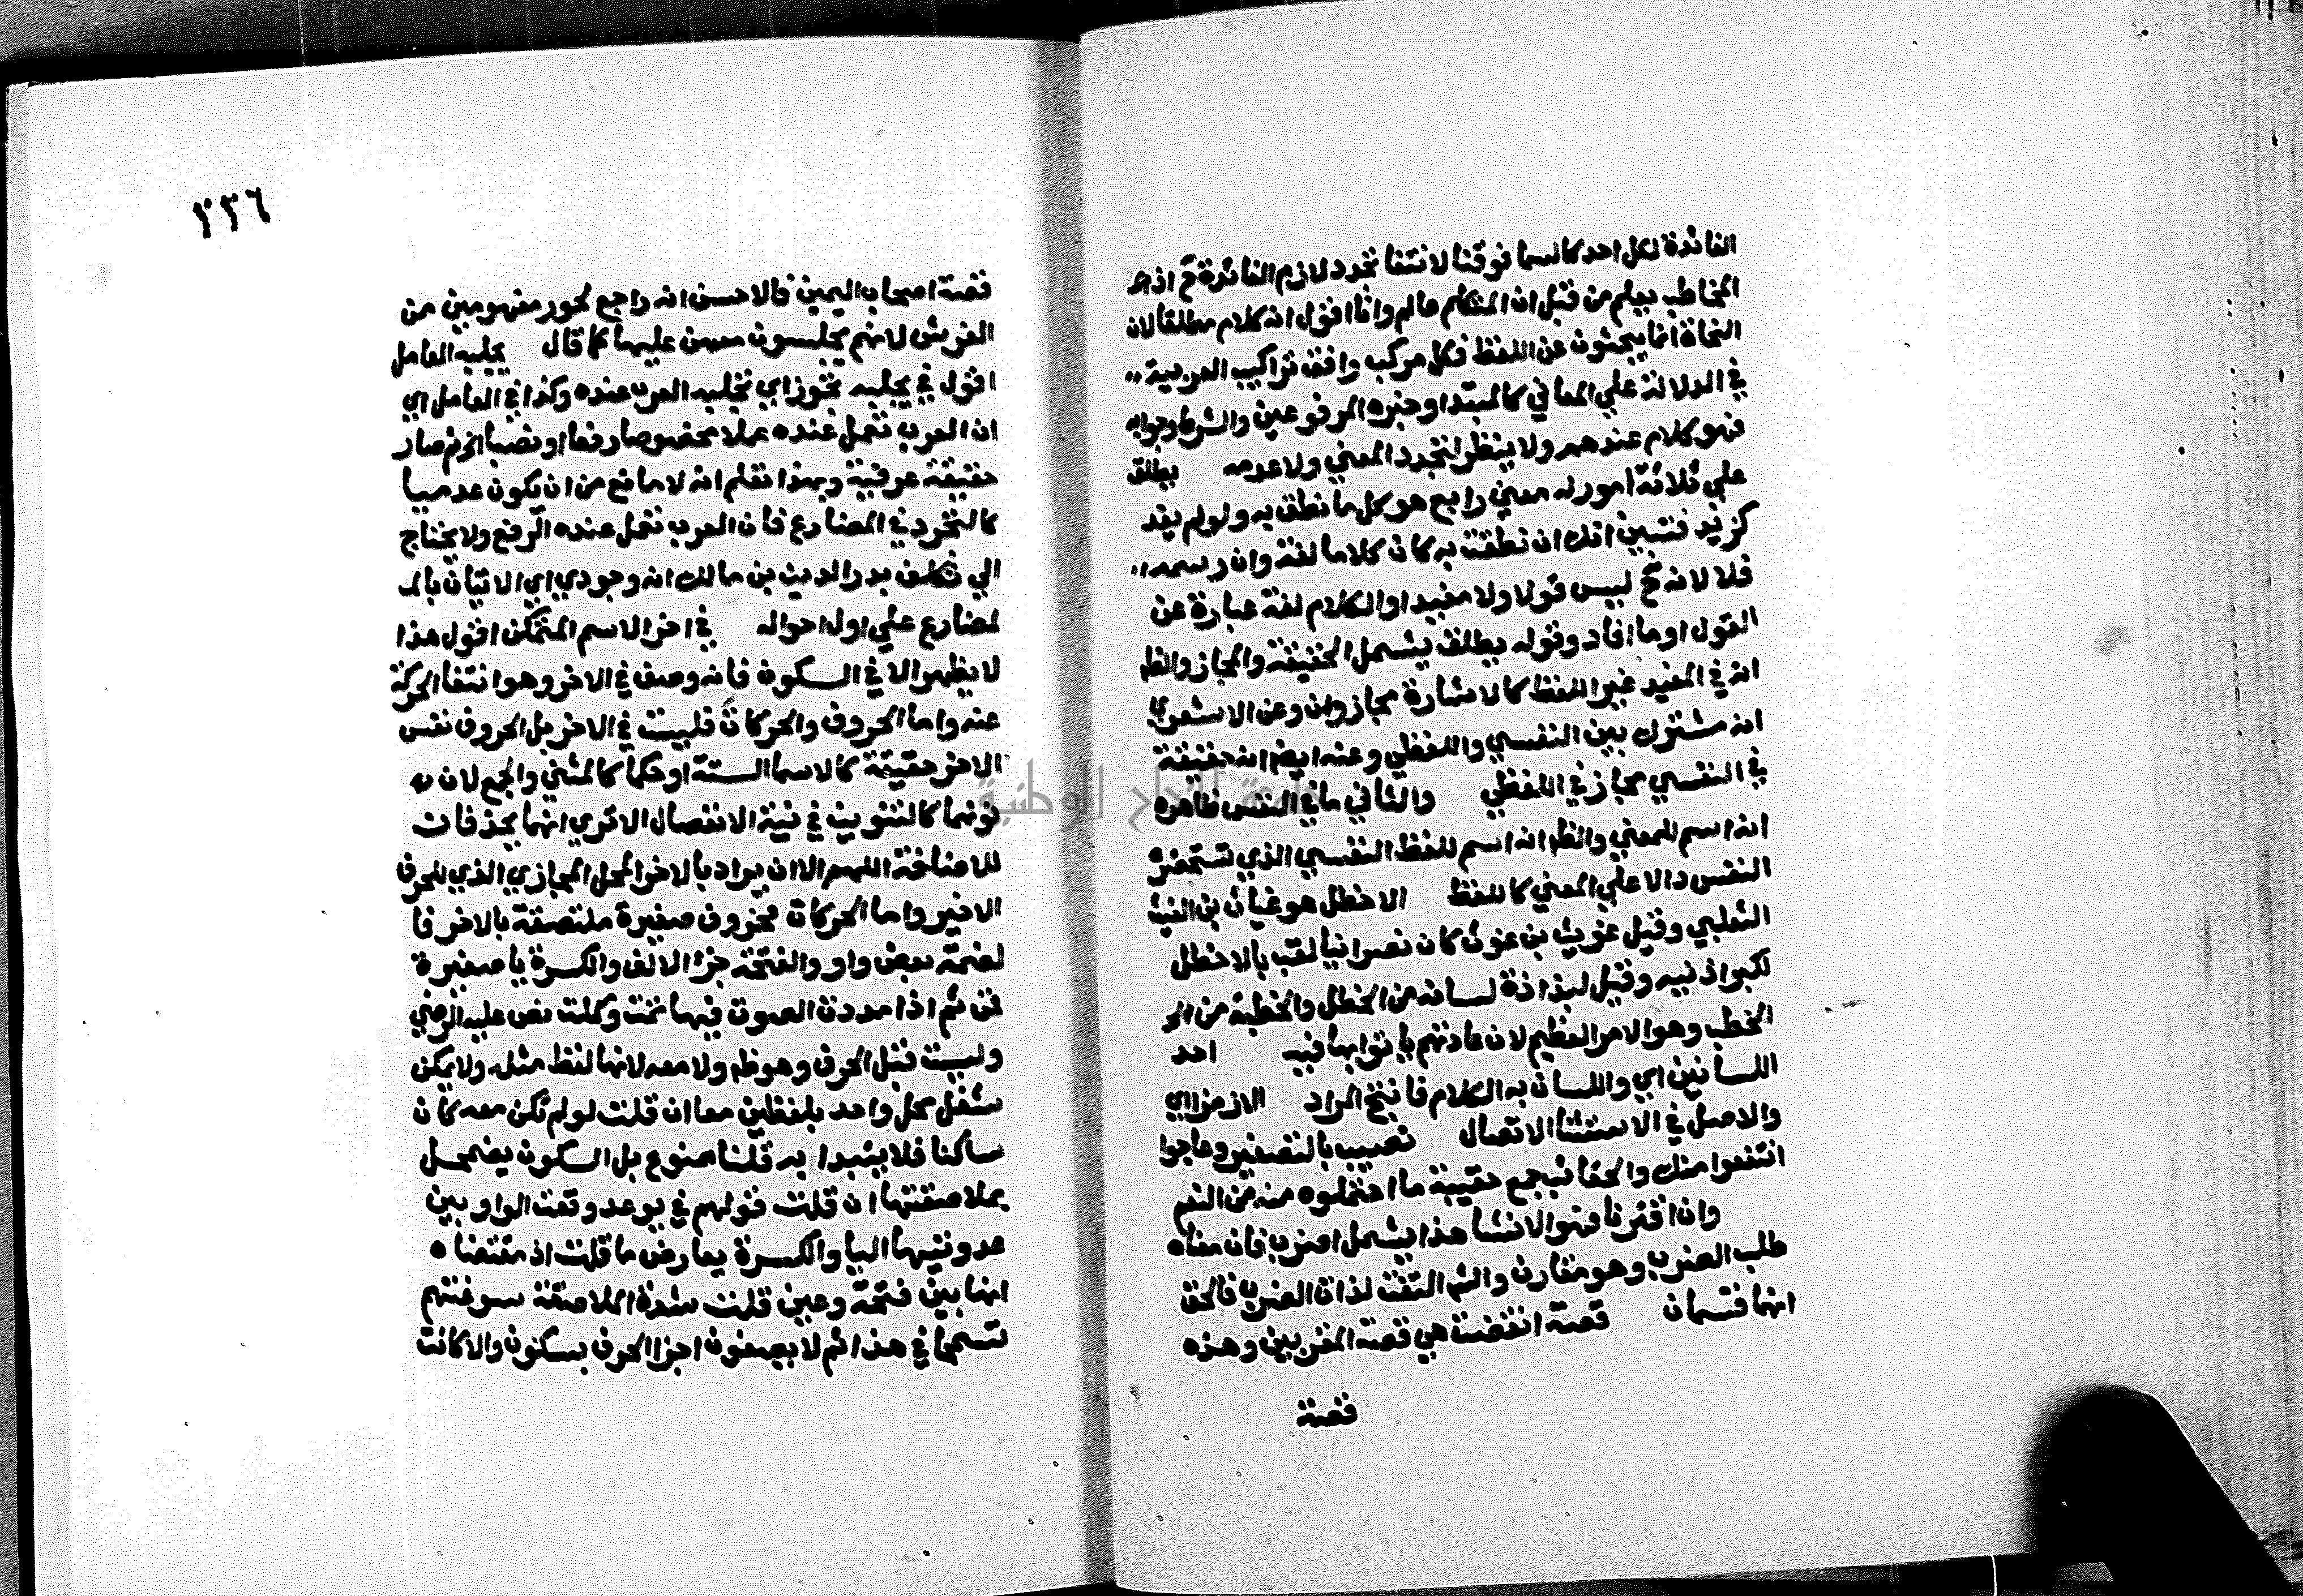 الفائدة لكل احد كالسما فوقنا لانتفا تجدد لازم الفائدة ح اذ هو
المخاطب يعلم من قبل ان المتكلم عالم وانا اقول انه كلام مطلقا لان
النحاة انما يبحثون عن اللفظ فكل مركب وافق تراكيب العربية
في الدلالة علي المعاني كالمبتدا وخبره المرفوعين والشرط وجوابه
فهو كلام عندهم ولا ينظر لتجدد المعني ولا عدمه يطلق
علي ثلاثة امور له معني رابع هو كل ما نطق به ولو لم يفد
كزيد فتبين انك ان نطقت به كان كلاما لغة وان رسمه
فلا لانه ح ليس قولا ولا مفيدا والكلام لغة عبارة عن
القول او ما افاد وقوله يطلق يشمل الحقيقة والمجاز والظ
انه في المفيد غير اللفظ كالاشارة مجاز وان وعن الاشعري
انه مشترك بين النفسي واللفظي وعنه ايضا انه حقيقة
في النفسي مجاز في اللفظي والثاني ما في النفس ظاهره
انه اسم للمعني والظ انه اسم للفظ النفسي الذي تستحضره
النفس دالا علي المعني كاللفظ الاخطل هو غياث بن الغيث
الثعلبي وقيل غويث بن غوث كان نصرانيا لقب بالاخطل
لكبر اذنيه وقيل لبذاذة لسانه من الخطل والخطبة من ال
الخطب وهو الامر العظيم لان عادتهم ياتوا بها فيه احد
اللسانين اي واللسان به الكلام فانتج المراد الا رمزا اي
والاصل في الاستثنا الاتصال نصيب بالتصغير وعاجوا
انتفعوا منك والحقائب جمع حقيبة ما احتملوه منه من النعم
وان اقترنا فهو الانشا هذا يشمل اضرب فان معناه
طلب الضرب وهو مقارن والشم التفت لذات الضرب فالحق
انهما قسمان قصة انقضت هي قصة المغربين وهذه
قصة
٢٢٦
قصة اصحاب اليمين فالاحسن انه راجع لحور مفهومين من
الفرش لانهم يجلسون معهن عليها كما قال يجلبه العامل
اقول في يجلبه تجوز اي تجلبه العرب عنده وكذا في العامل اي
ان العرب تعمل عنده عملا مخصوصا رفعا او نصبا الخ ثم صار
حقيقة عرفية وبهذا تعلم انه لا مانع من ان يكون عدميا
كالتجرد في المضارع فان العرب تعمل عنده الرفع ولا يحتاج
الي تكلف بدر الدين بن مالك انه وجودي اي الاتيان بال
لمضارع علي اول احواله في اخر الاسم المتمكن اقول هذا
لا يظهر الا في السكون فانه وصف في الاخر وهو انتفا الحركة
عنه واما الحروف والحركات فليست في الاخر بل الحروف نفس
الاخر حقيقة كالاسما الستة او حكما كالمثني والجمع لان
نونهما كالتنوين في نية الانفصال الا تري انهما يحذفان
للاضافة اللهم الا ان يراد بالاخر المحل المجازي الذي للحرف
الاخير واما الحركات فحروف صغيرة ملتصقة بالاخر فا
لضمة بعض واو والفتحة جزء الالف والكسرة يا صغيرة
فمن ثم اذا مددت الصوت فيها تمت وكملت نص عليه الرضي
وليست قبل الحرف وهو ظ ولا معه لانها لفظ مثله ولا يمكن
شغل محل واحد بلفظين معا ان قلت لو لم تكن معه كان
ساكنا فلا يبتدا به قلنا ممنوع بل السكون يضمحل
بملاصقتها ان قلت قولهم في يوعد وقعت الواو بين
عدوتيها اليا والكسرة يعارض ما قلت اذ مقتضاه
انها بين فتحة وعين قلت شدة الملاصقة سوغتهم
تسمحا في هذا ثم لا يصفون اجزا الحرف بسكون والا كانت